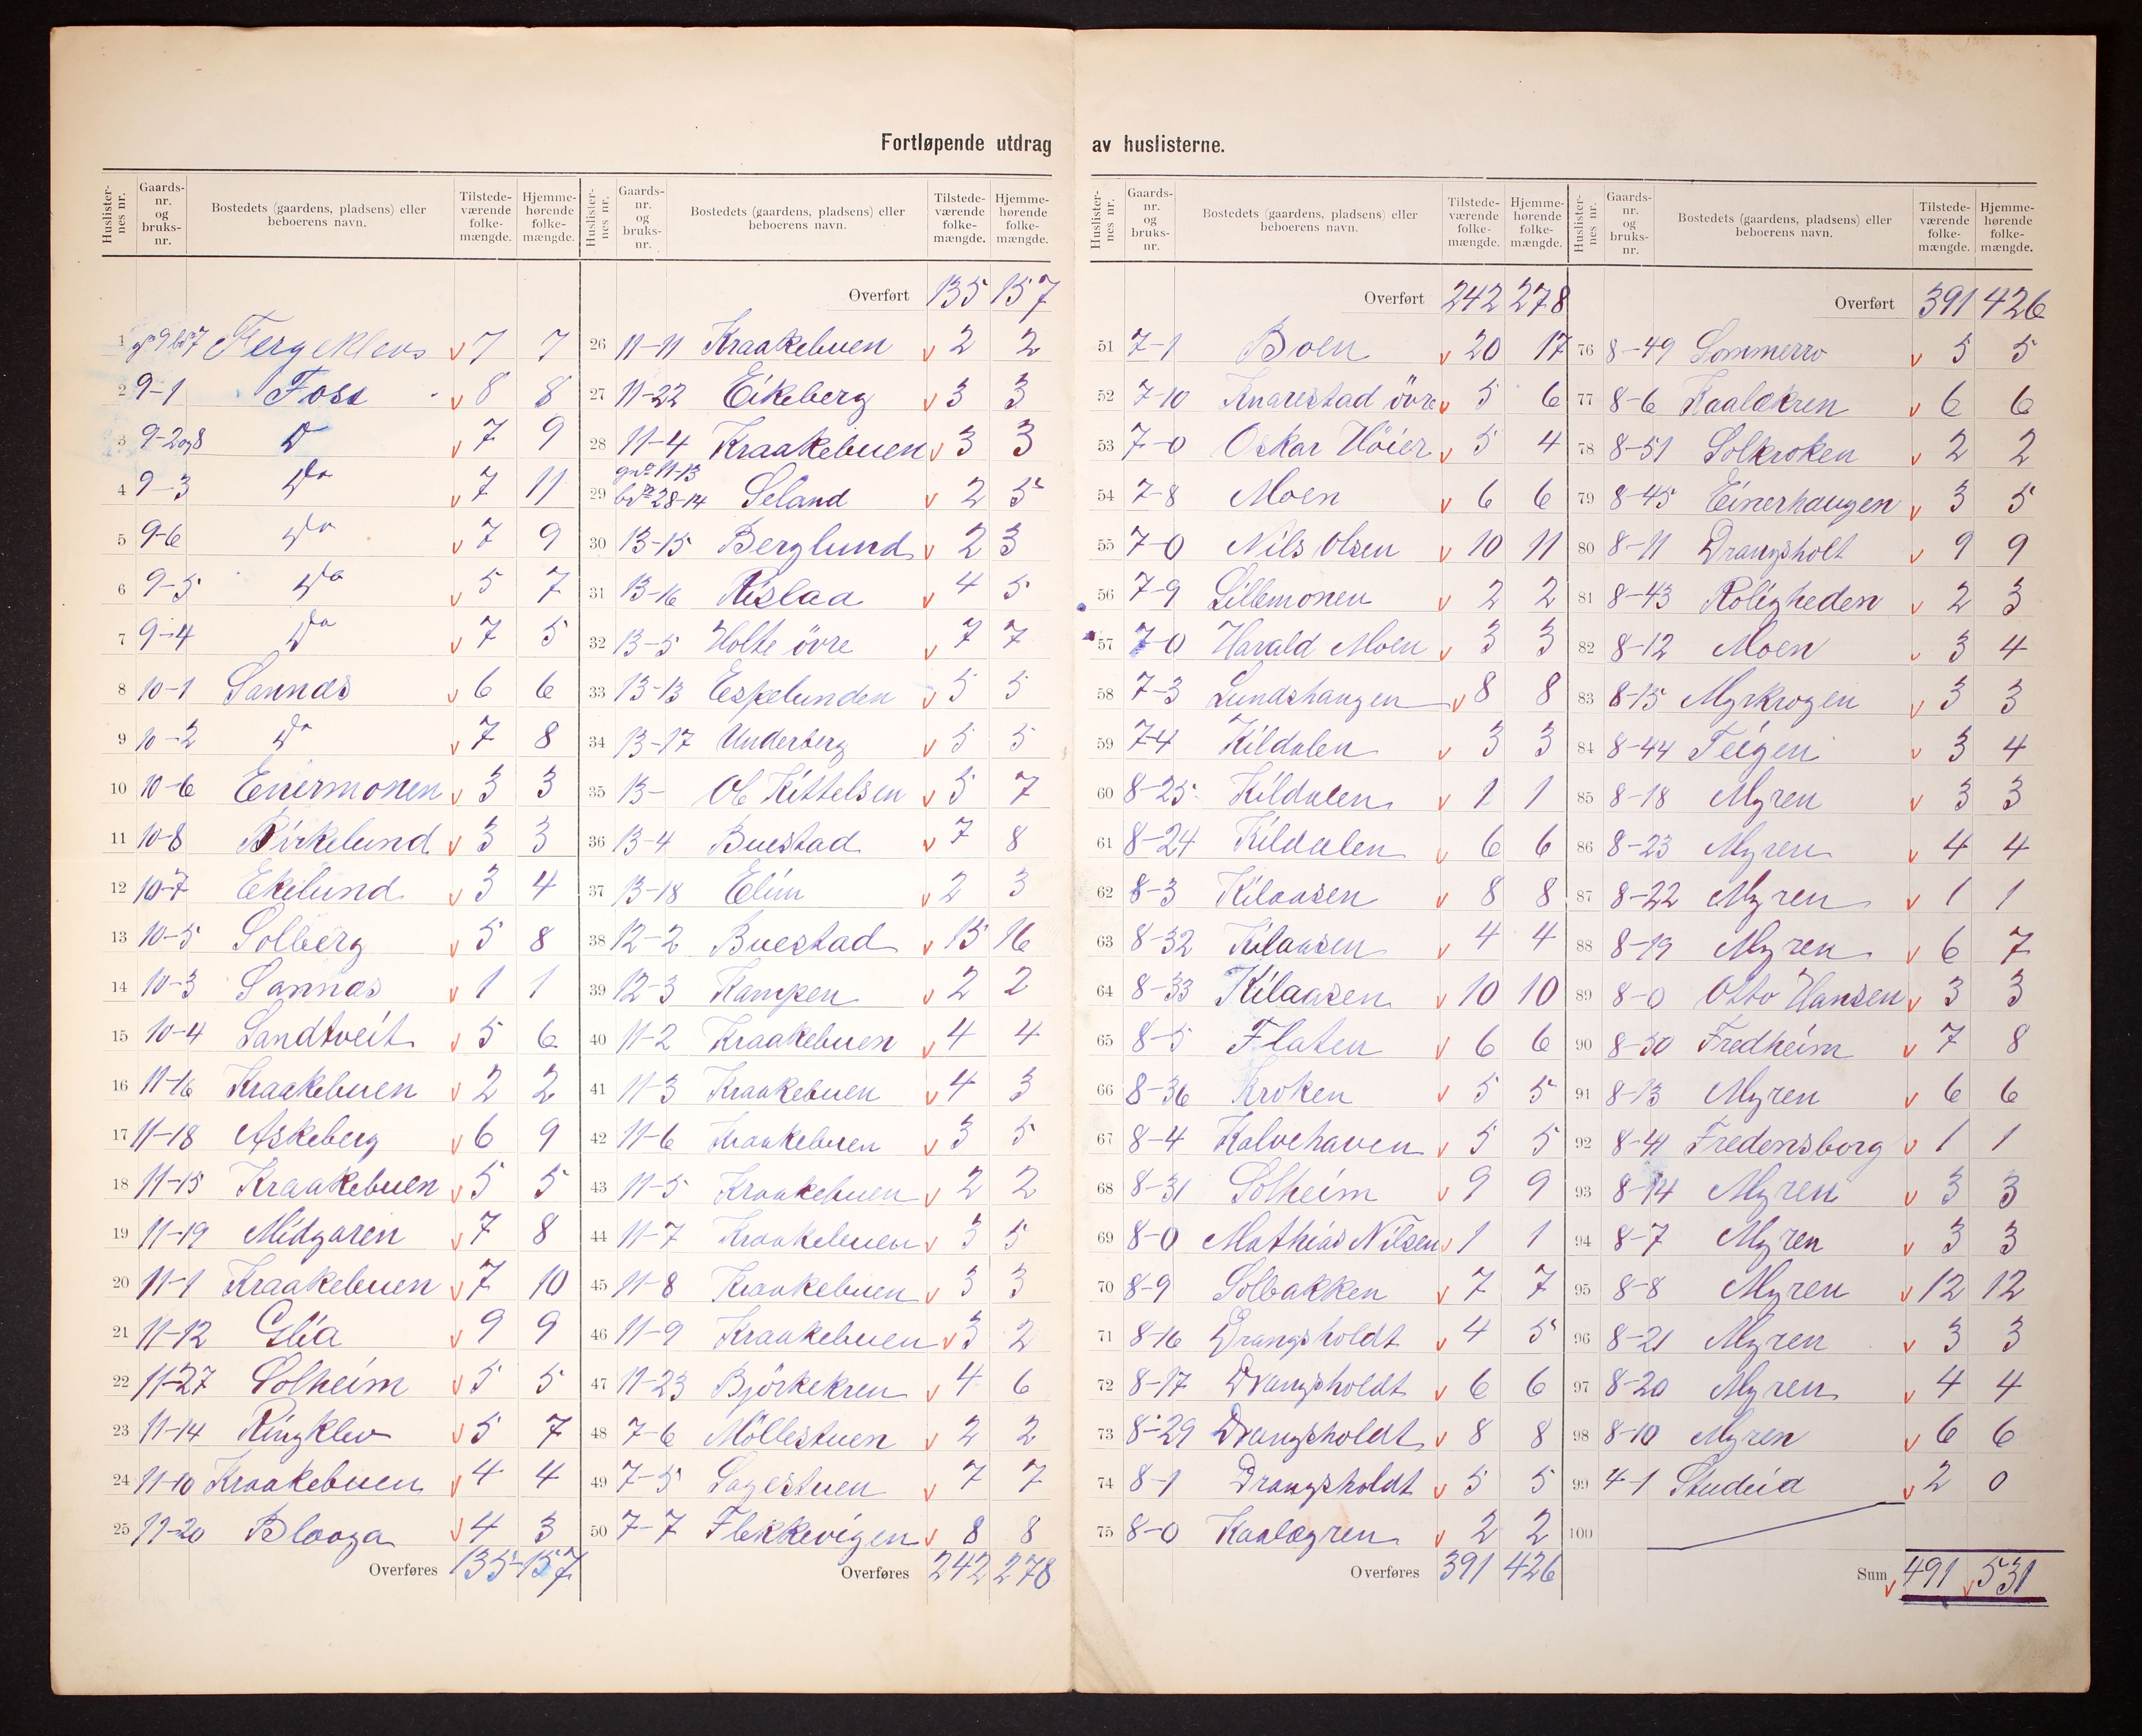 Fortløpende utdrag av huslisterne.
Huslister-nes nr. Gaards-nr. og bruks-nr. Bostedets (gaardens, pladsens) eller beboerens navn. Tilstede-værende folke-mængde. Hjemme-hørende folke-mængde.
1 gno 9 bno 7 Fergeklev v 7 7
2 9-1 Foss v 8 8
3 9-2 og 8 Do v 7 9
4 9-3 Do v 7 11
5 9-6 Do v 7 9
6 9-5 Do v 5 7
7 9-4 Do v 7 5
8 10-1 Sannas v 6 6
9 10-2 Do v 7 8
10 10-6 Enermonen v 3 3
11 10-8 Birkelund v 3 3
12 10-7 Ekelund v 3 4
13 10-5 Solberg v 5 8
14 10-3 Sannas v 1 1
15 10-4 Sandtveit v 5 6
16 11-16 Kraakebuen v 2 2
17 11-18 Askeberg v 6 9
18 11-15 Kraakebuen v 5 5
19 11-19 Midgaren v 7 8
20 11-1 Kraakebuen v 7 10
21 11-12 Glia v 9 9
22 11-27 Solheim v 5 5
23 11-14 Ringklev v 5 7
24 11-10 Kraakebuen v 4 4
25 11-20 Blaaga v 4 3
Overføres 135 157
Huslister-nes nr. Gaards-nr. og bruks-nr. Bostedets (gaardens, pladsens) eller beboerens navn. Tilstede-værende folke-mængde. Hjemme-hørende folke-mængde.
Overført 135 157
26 11-11 Kraakebuen v 2 2
27 11-22 Eikeberg v 3 3
28 11-4 Kraakebuen v 3 3
29 gno 11-13 bno 28-14 Seland v 2 5
30 13-15 Berglund v 2 3
31 13-16 Rislaa v 4 5
32 13-5 Holte övre v 7 7
33 13-13 Espelunden v 5 5
34 13-17 Underberg v 5 5
35 13- Ole Kittelsen v 5 7
36 13-4 Buestad v 7 8
37 13-18 Elim v 2 3
38 12-2 Buestad v 15 16
39 12-3 Kampen v 2 2
40 11-2 Kraakebuen v 4 4
41 11-3 Kraakebuen v 4 3
42 11-6 Kraakebuen v 3 5
43 11-5 Kraakebuen v 2 2
44 11-7 Kraakebuen v 3 5
45 11-8 Kraakebuen v 3 3
46 11-9 Kraakebuen v 3 2
47 11-23 Björkekren v 4 6
48 7-6 Möllestuen v 2 2
49 7-5 Sagestuen v 7 7
50 7-7 Flekkevigen v 8 8
Overføres 242 278
Huslister-nes nr. Gaards-nr. og bruks-nr. Bostedets (gaardens, pladsens) eller beboerens navn. Tilstede-værende folke-mængde. Hjemme-hørende folke-mængde.
Overført 242 278
51 7-1 Boen v 20 17
52 7-10 Knarestad övre v 5 6
53 7-0 Oskar Höier v 5 4
54 7-8 Moen v 6 6
55 7-0 Nils Olsen v 10 11
56 7-9 Lillemonen v 2 2
57 7-0 Harald Moen v 3 3
58 7-3 Lundshaugen v 8 8
59 7-4 Kildalen v 3 3
60 8-25 Kildalen v 1 1
61 8-24 Kildalen v 6 6
62 8-3 Kilaasen v 8 8
63 8-32 Kilaasen v 4 4
64 8-33 Kilaasen v 10 10
65 8-5 Flaten v 6 6
66 8-36 Kroken v 5 5
67 8-4 Kalvehaven v 5 5
68 8-31 Solheim v 9 9
69 8-0 Mathias Nilsen v 1 1
70 8-9 Solbakken v 7 7
71 8-16 Drangsholdt v 4 5
72 8-17 Drangsholdt v 6 6
73 8-29 Drangsholdt v 8 8
74 8-1 Drangsholdt v 5 5
75 8-0 Kaalægren v 2 2
Overføres 391 426
Huslister-nes nr. Gaards-nr. og bruks-nr. Bostedets (gaardens, pladsens) eller beboerens navn. Tilstede-værende folke-mængde. Hjemme-hørende folke-mængde.
Overført 391 426
76 8-49 Sommerro v 5 5
77 8-6 Kaalekren v 6 6
78 8-51 Solkroken v 2 2
79 8-45 Einerhaugen v 3 5
80 8-11 Drangsholt v 9 9
81 8-43 Roligheden v 2 3
82 8-12 Moen v 3 4
83 8-15 Myrkrogen v 3 3
84 8-44 Teigen v 3 4
85 8-18 Myren v 3 3
86 8-23 Myren v 4 4
87 8-22 Myren v 1 1
88 8-19 Myren v 6 7
89 8-0 Otto Hansen v 3 3
90 8-50 Fredheim v 7 8
91 8-13 Myren v 6 6
92 8-41 Fredensborg v 1 1
93 8-14 Myren v 3 3
94 8-7 Myren v 3 3
95 8-8 Myren v 12 12
96 8-21 Myren v 3 3
97 8-20 Myren v 4 4
98 8-10 Myren v 6 6
99 4-1 Studeia v 2 0
100
Sum v 491 v 531